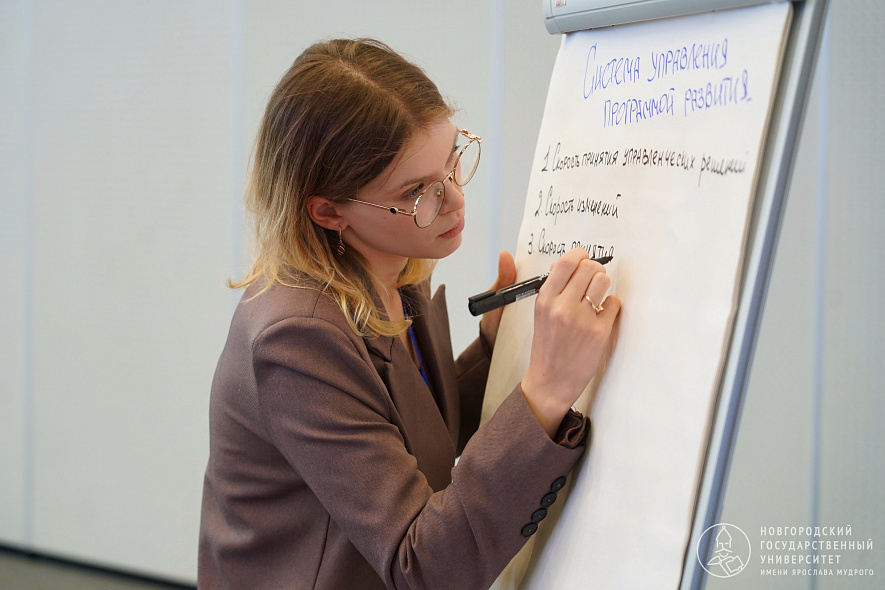 Система управления
программой развития
1. Скорость принятия управленческих решений
2. Скорость измерений
3. Скорость принятия
НОВГОРОДСКИЙ
ГОСУДАРСТВЕННЫЙ
УНИВЕРСИТЕТ
ИМЕНИ ЯРОСЛАВА МУДРОГО